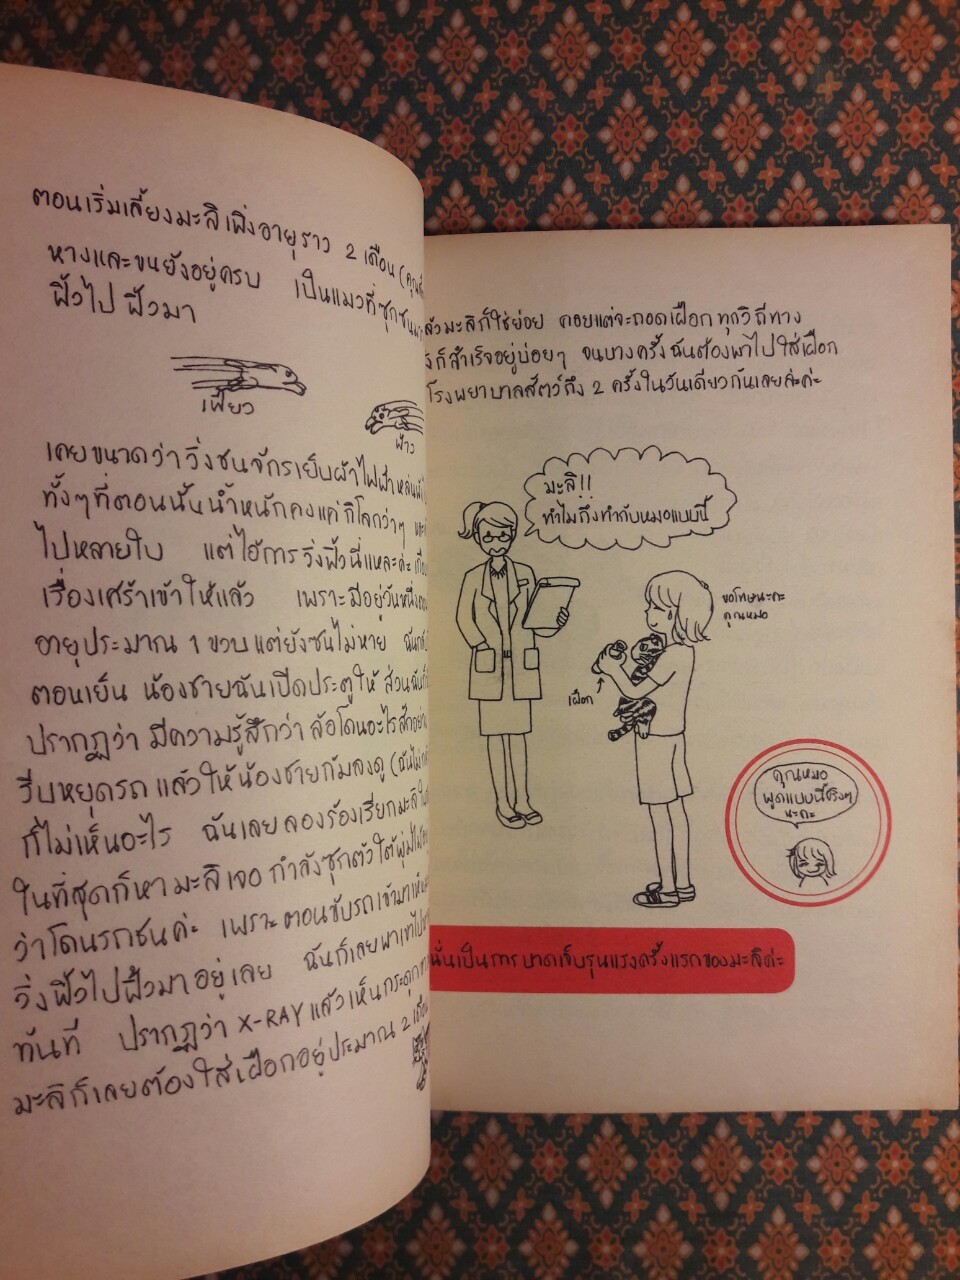 ตอนเริ่มเลี้ยงมะลิเพิ่งอายุราว 2 เดือน (คุณ
หางและขนยังอยู่ครบ เป็นแมวที่ซุกซน
ฟิ้วไป ฟิ้วมา
เฟี้ยว
ฟ้าว
เคยขนาดว่าวิ่งชนจักรเย็บผ้าไฟฟ้าหล่น
ทั้งๆที่ตอนนั้นน้ำหนักคงแค่กิโลกว่าๆ
ไปหลายใบ แต่ไอ้การวิ่งฟิ้วนี่แหละค่ะ
เรื่องเศร้าเข้าให้แล้ว เพราะมีอยู่วันหนึ่ง
อายุประมาณ 1 ขวบ แต่ยังซนไม่หาย
ตอนเย็น น้องชายฉันเปิดประตูให้ ส่วนฉัน
ปรากฏว่า มีความรู้สึกว่า ล้อโดนอะไรสักอย่าง
รีบหยุดรถ แล้วให้น้องชายก้มลงดู
ก็ไม่เห็นอะไร ฉันเลยลองร้องเรียกมะลิ
ในที่สุดก็หามะลิเจอ กำลังซุกตัวใต้พุ่มไม้
ว่าโดนรถชนค่ะ เพราะตอนขับรถเข้ามา
วิ่งฟิ้วไปฟิ้วมาอยู่เลย ฉันก็เลยพาเขาไป
ทันที ปรากฏว่า X-RAY แล้วเห็นกระดูก
มะลิก็เลยต้องใส่เฝือกอยู่ประมาณ 2 เดือน
ล้วมะลิก็ใช่ย่อย คอยแต่จะถอดเฝือกทุกวิถีทาง
งก็สำเร็จอยู่บ่อยๆ จนบางครั้งฉันต้องพาไปใส่เฝือก
โรงพยาบาลสัตว์ถึง 2 ครั้งในวันเดียวกันเลยล่ะค่ะ
มะลิ!!
ทำไมถึงทำกับหมอแบบนี้
ขอโทษนะคะ
คุณหมอ
เฝือก
คุณหมอ
พูดแบบนี้จริงๆ
นะคะ
นั่นเป็นการบาดเจ็บรุนแรงครั้งแรกของมะลิค่ะ